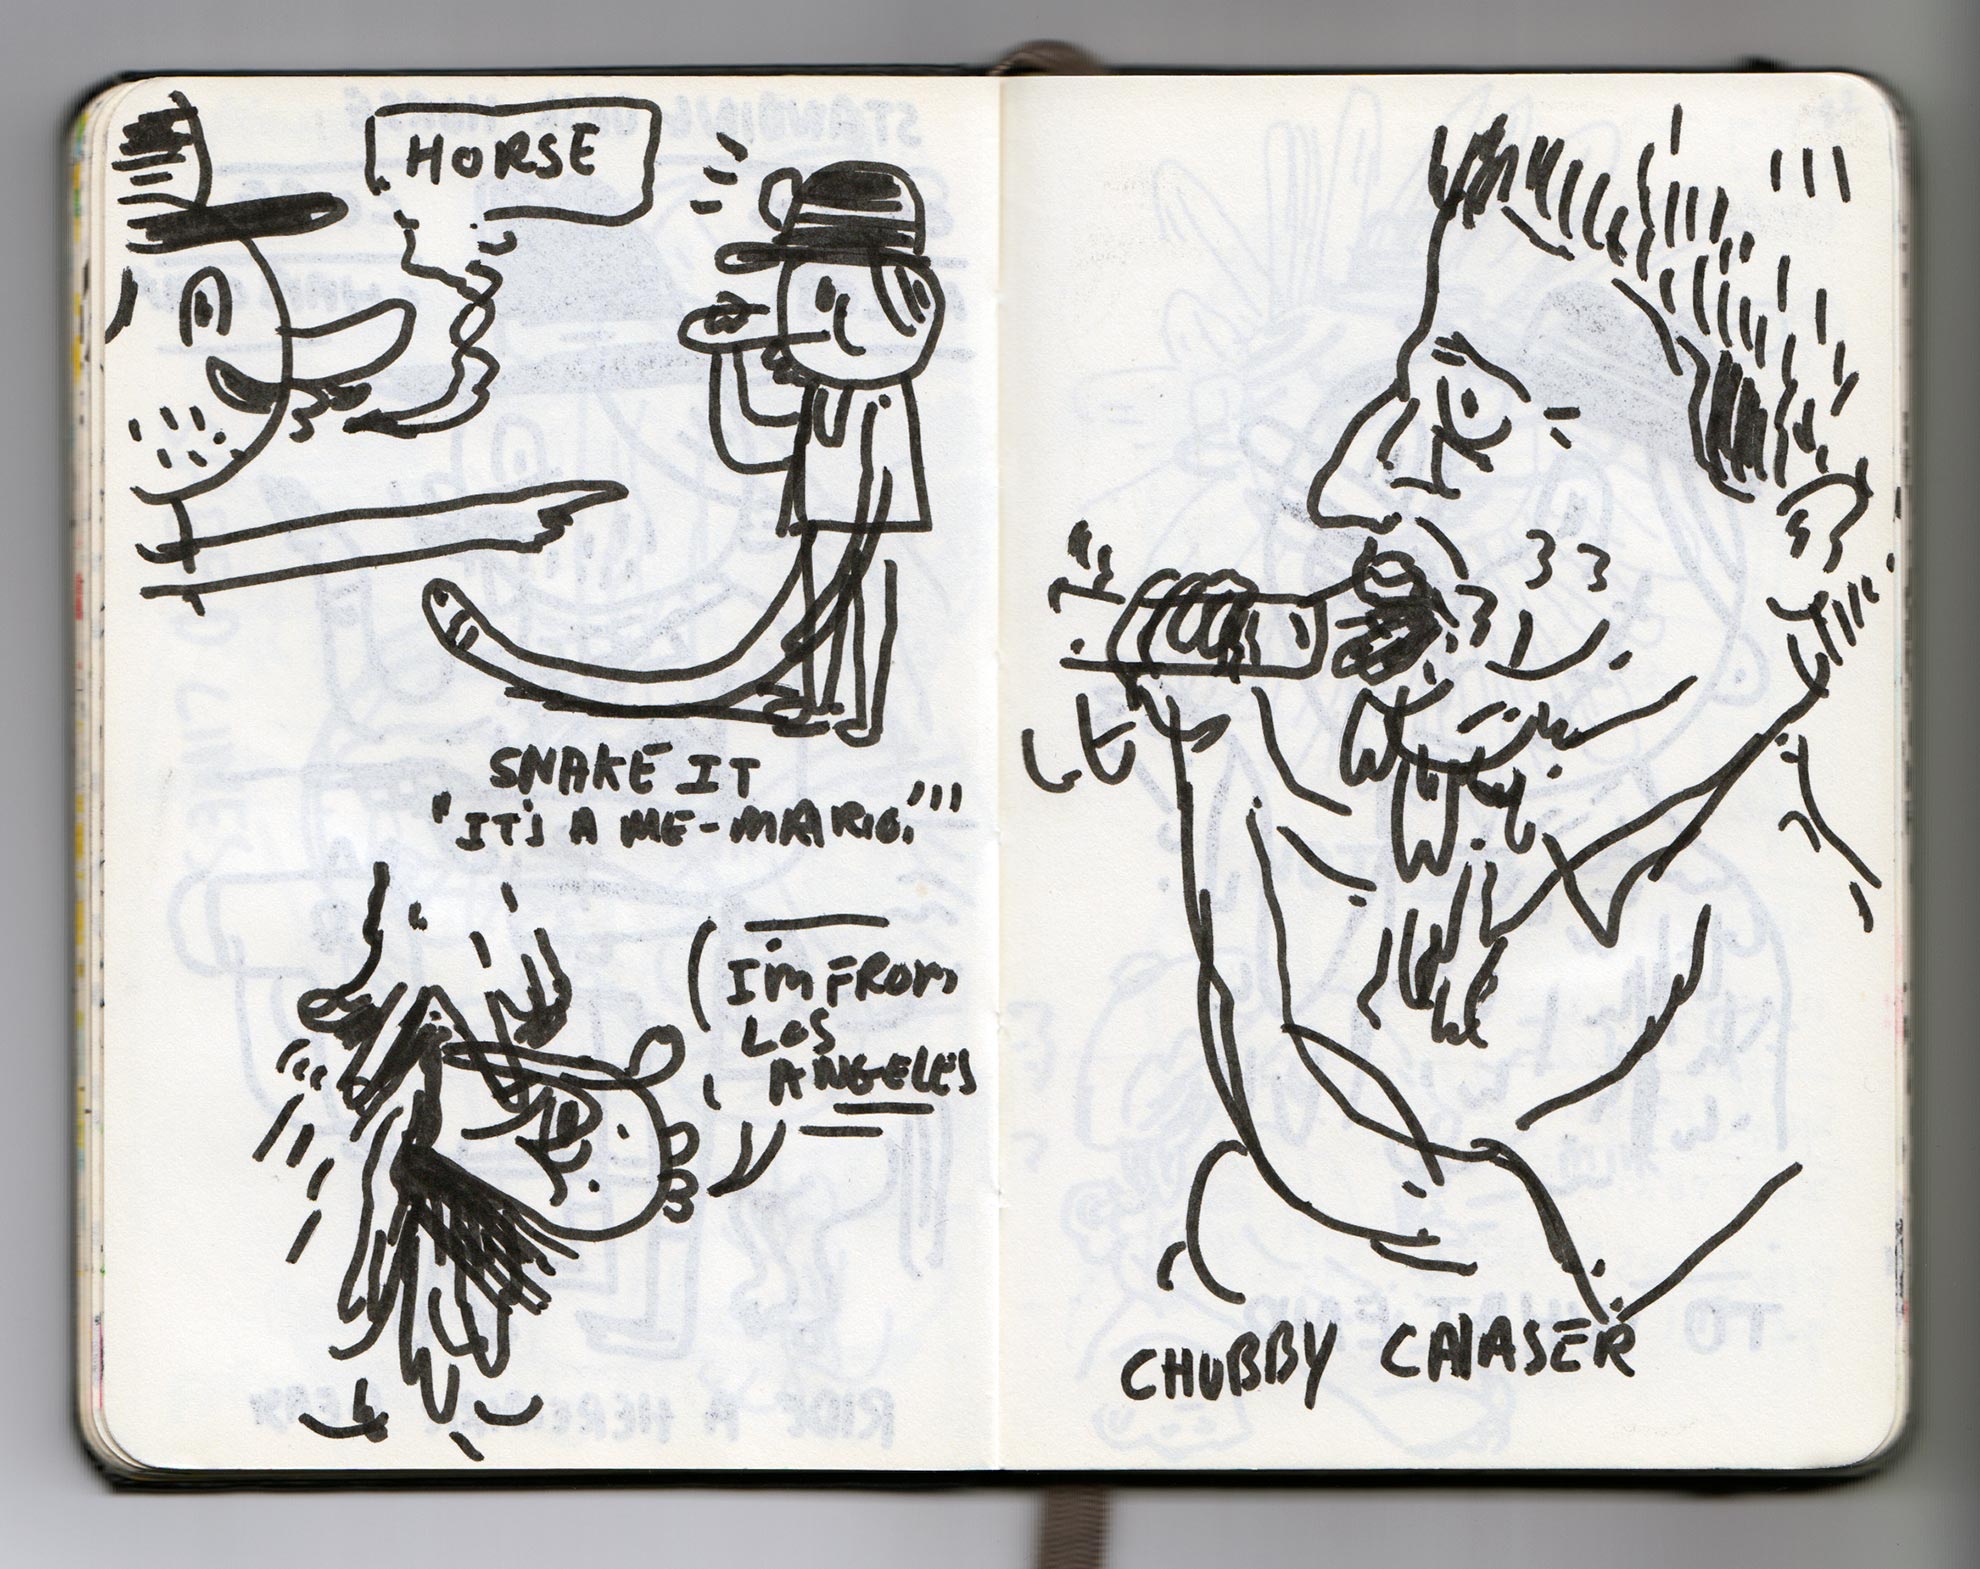 HORSE
SNAKE IT
"IT'S A ME-MARIO."
I'M FROM
LOS
ANGELES
CHUBBY CHASER